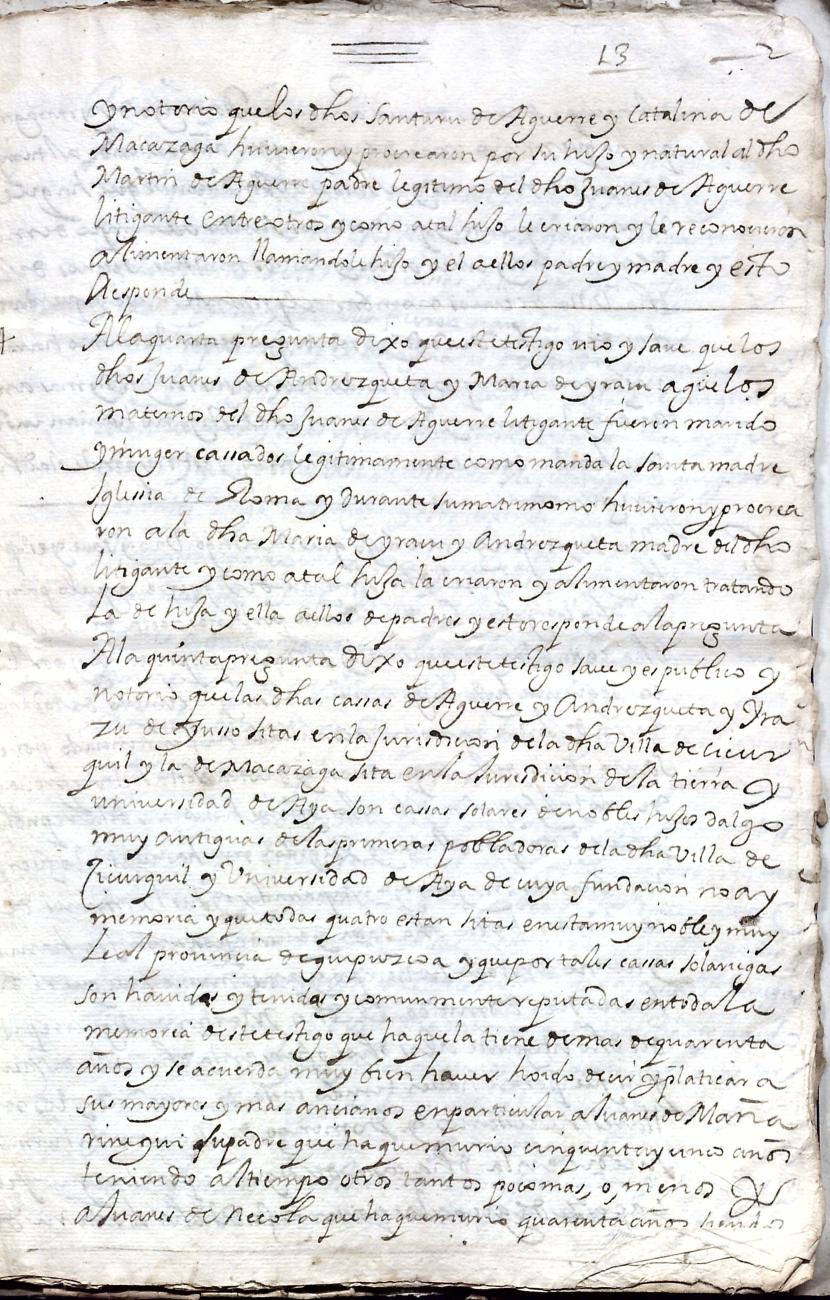 13 2
y notorio que los dhos Santuru de Aguerre y Catalina de
Macazaga huvieron y procrearon por su hijo y natural al dho
Martin de Aguerre padre legitimo del dho Juanes de Aguerre
litigante entre otros y como a tal hijo le criaron y le reconocieron
alimentaron llamandole hijo y el a ellos padre y madre y esto
Responde
A la quarta pregunta dixo que este testigo vio y save que los
dhos Juanes de Andrezqueta y Maria de yraçu aguelos
maternos del dho Juanes de Aguerre litigante fueron marido
y muger cassados legitimamente como manda la santa madre
Iglesia de Roma y durante su matrimonio huvieron y procrea
ron a la dha Maria de yraçu y Andrezqueta madre del dho
litigante y como a tal hija la criaron y alimentaron tratando
La de hija y ella a ellos de padres y esto responde a la pregunta
A la quinta pregunta dixo que este testigo save y es publico y
notorio que las dhas cassas de Aguerre y Andrezqueta y Yra
zu de Jusso sitas en la Jurisdicion de la dha Villa de cicur
quil y la de Macazaga sita en la Jurisdicion de la tierra y
universidad de Aya son cassas solares de nobles hijos dalgo
muy antiguas de las primeras pobladoras de la dha Villa de
Zicurquil y Universidad de Aya de cuya fundacion no ay
memoria y que todas quatro estan sitas en esta muy noble y muy
Leal provincia de guipuzcoa y que por tales cassas solariegas
son havidas y tenidas y comunmente reputadas en toda la
memoria deste testigo que ha que la tiene de mas de quarenta
años y se acuerda muy bien haver hoido decir y platicar a
sus mayores y mas ancianos en particular a Juanes de Maña
rinegui su padre que ha que murio cinquenta y cinco años
teniendo al tiempo otros tantos poco mas, o, menos y
a Juanes de Recola que ha que murio quarenta años siendo